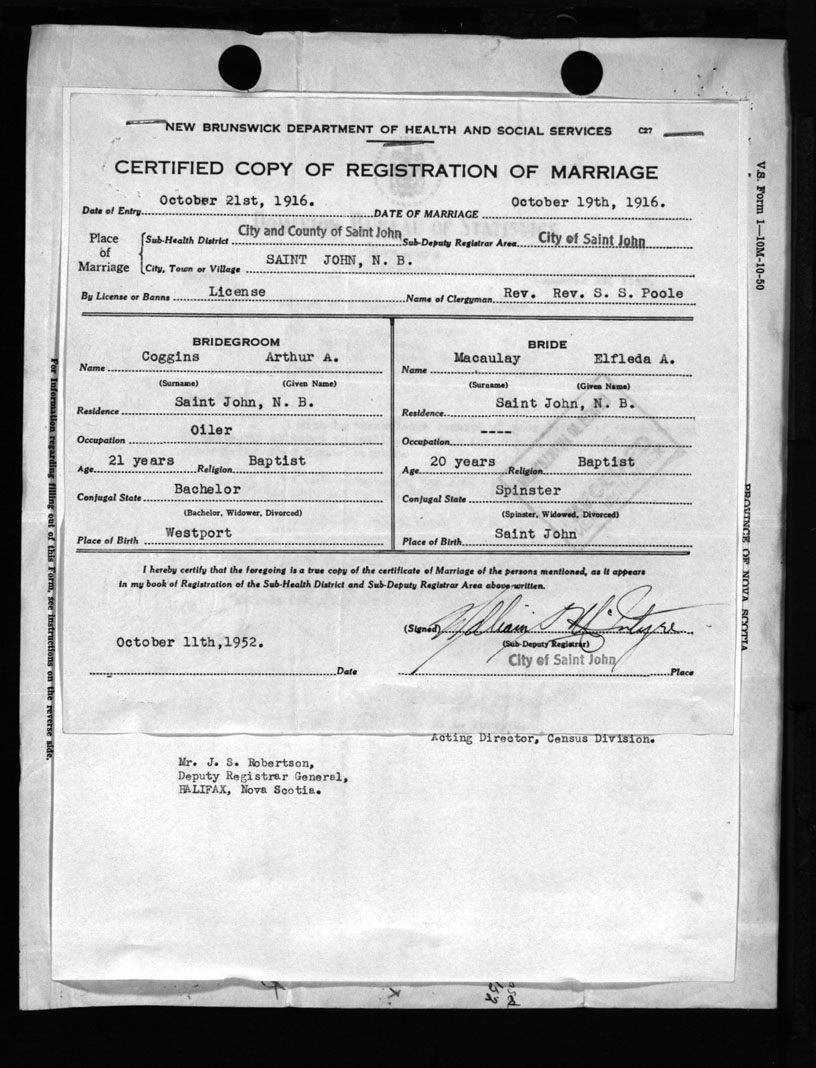 NEW BRUNSWICK DEPARTMENT OF HEALTH AND SOCIAL SERVICES C27
CERTIFIED COPY OF REGISTRATION OF MARRIAGE
Date of Entry October 21st, 1916. DATE OF MARRIAGE October 19th, 1916.
Place of Marriage
Sub-Health District City and County of Saint John Sub-Deputy Registrar Area City of Saint John
City, Town or Village SAINT JOHN, N. B.
By License or Banns License Name of Clergyman Rev. Rev. S. S. Poole
BRIDEGROOM
Name Coggins Arthur A.
(Surname) (Given Name)
Residence Saint John, N. B.
Occupation Oiler
Age 21 years Religion Baptist
Conjugal State Bachelor
(Bachelor, Widower, Divorced)
Place of Birth Westport
BRIDE
Name Macaulay Elfleda A.
(Surname) (Given Name)
Residence Saint John, N. B.
Occupation ----
Age 20 years Religion Baptist
Conjugal State Spinster
(Spinster, Widowed, Divorced)
Place of Birth Saint John
I hereby certify that the foregoing is a true copy of the certificate of Marriage of the persons mentioned, as it appears
in my book of Registration of the Sub-Health District and Sub-Deputy Registrar Area above written.
(Signed) William McIntyre
(Sub-Deputy Registrar)
October 11th, 1952. Date
City of Saint John Place
Acting Director, Census Division.
Mr. J. S. Robertson,
Deputy Registrar General,
HALIFAX, Nova Scotia.
For Information regarding filling out of this Form, see instructions on the reverse side.
V.S. Form 1—10M-10-50
PROVINCE OF NOVA SCOTIA